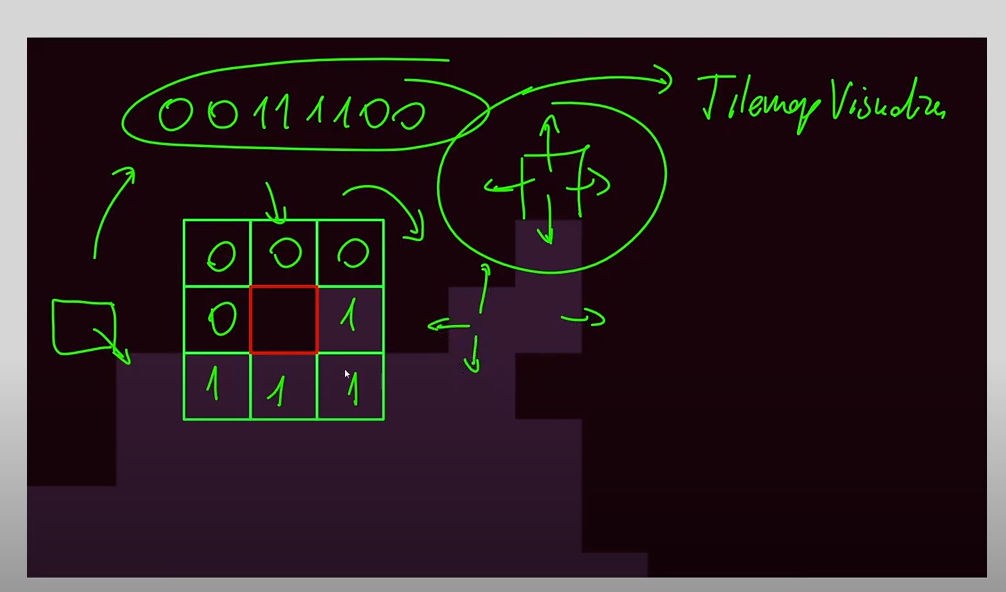 00111100
Tilemap Visualizer
0 0 0
0 1
1 1 1